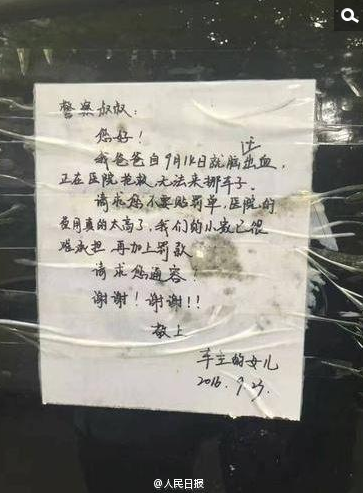 警察叔叔:
您好!
我爸爸自9月 日就脑出血,
正在医院抢救,无法来挪车子.
请求您不要贴罚单,医院的
费用真的太高了,我们的小家已很
难承担,再加上罚款
请求您通容!
谢谢!谢谢!!
敬上
车主的女儿
2016.9.27.
@人民日报